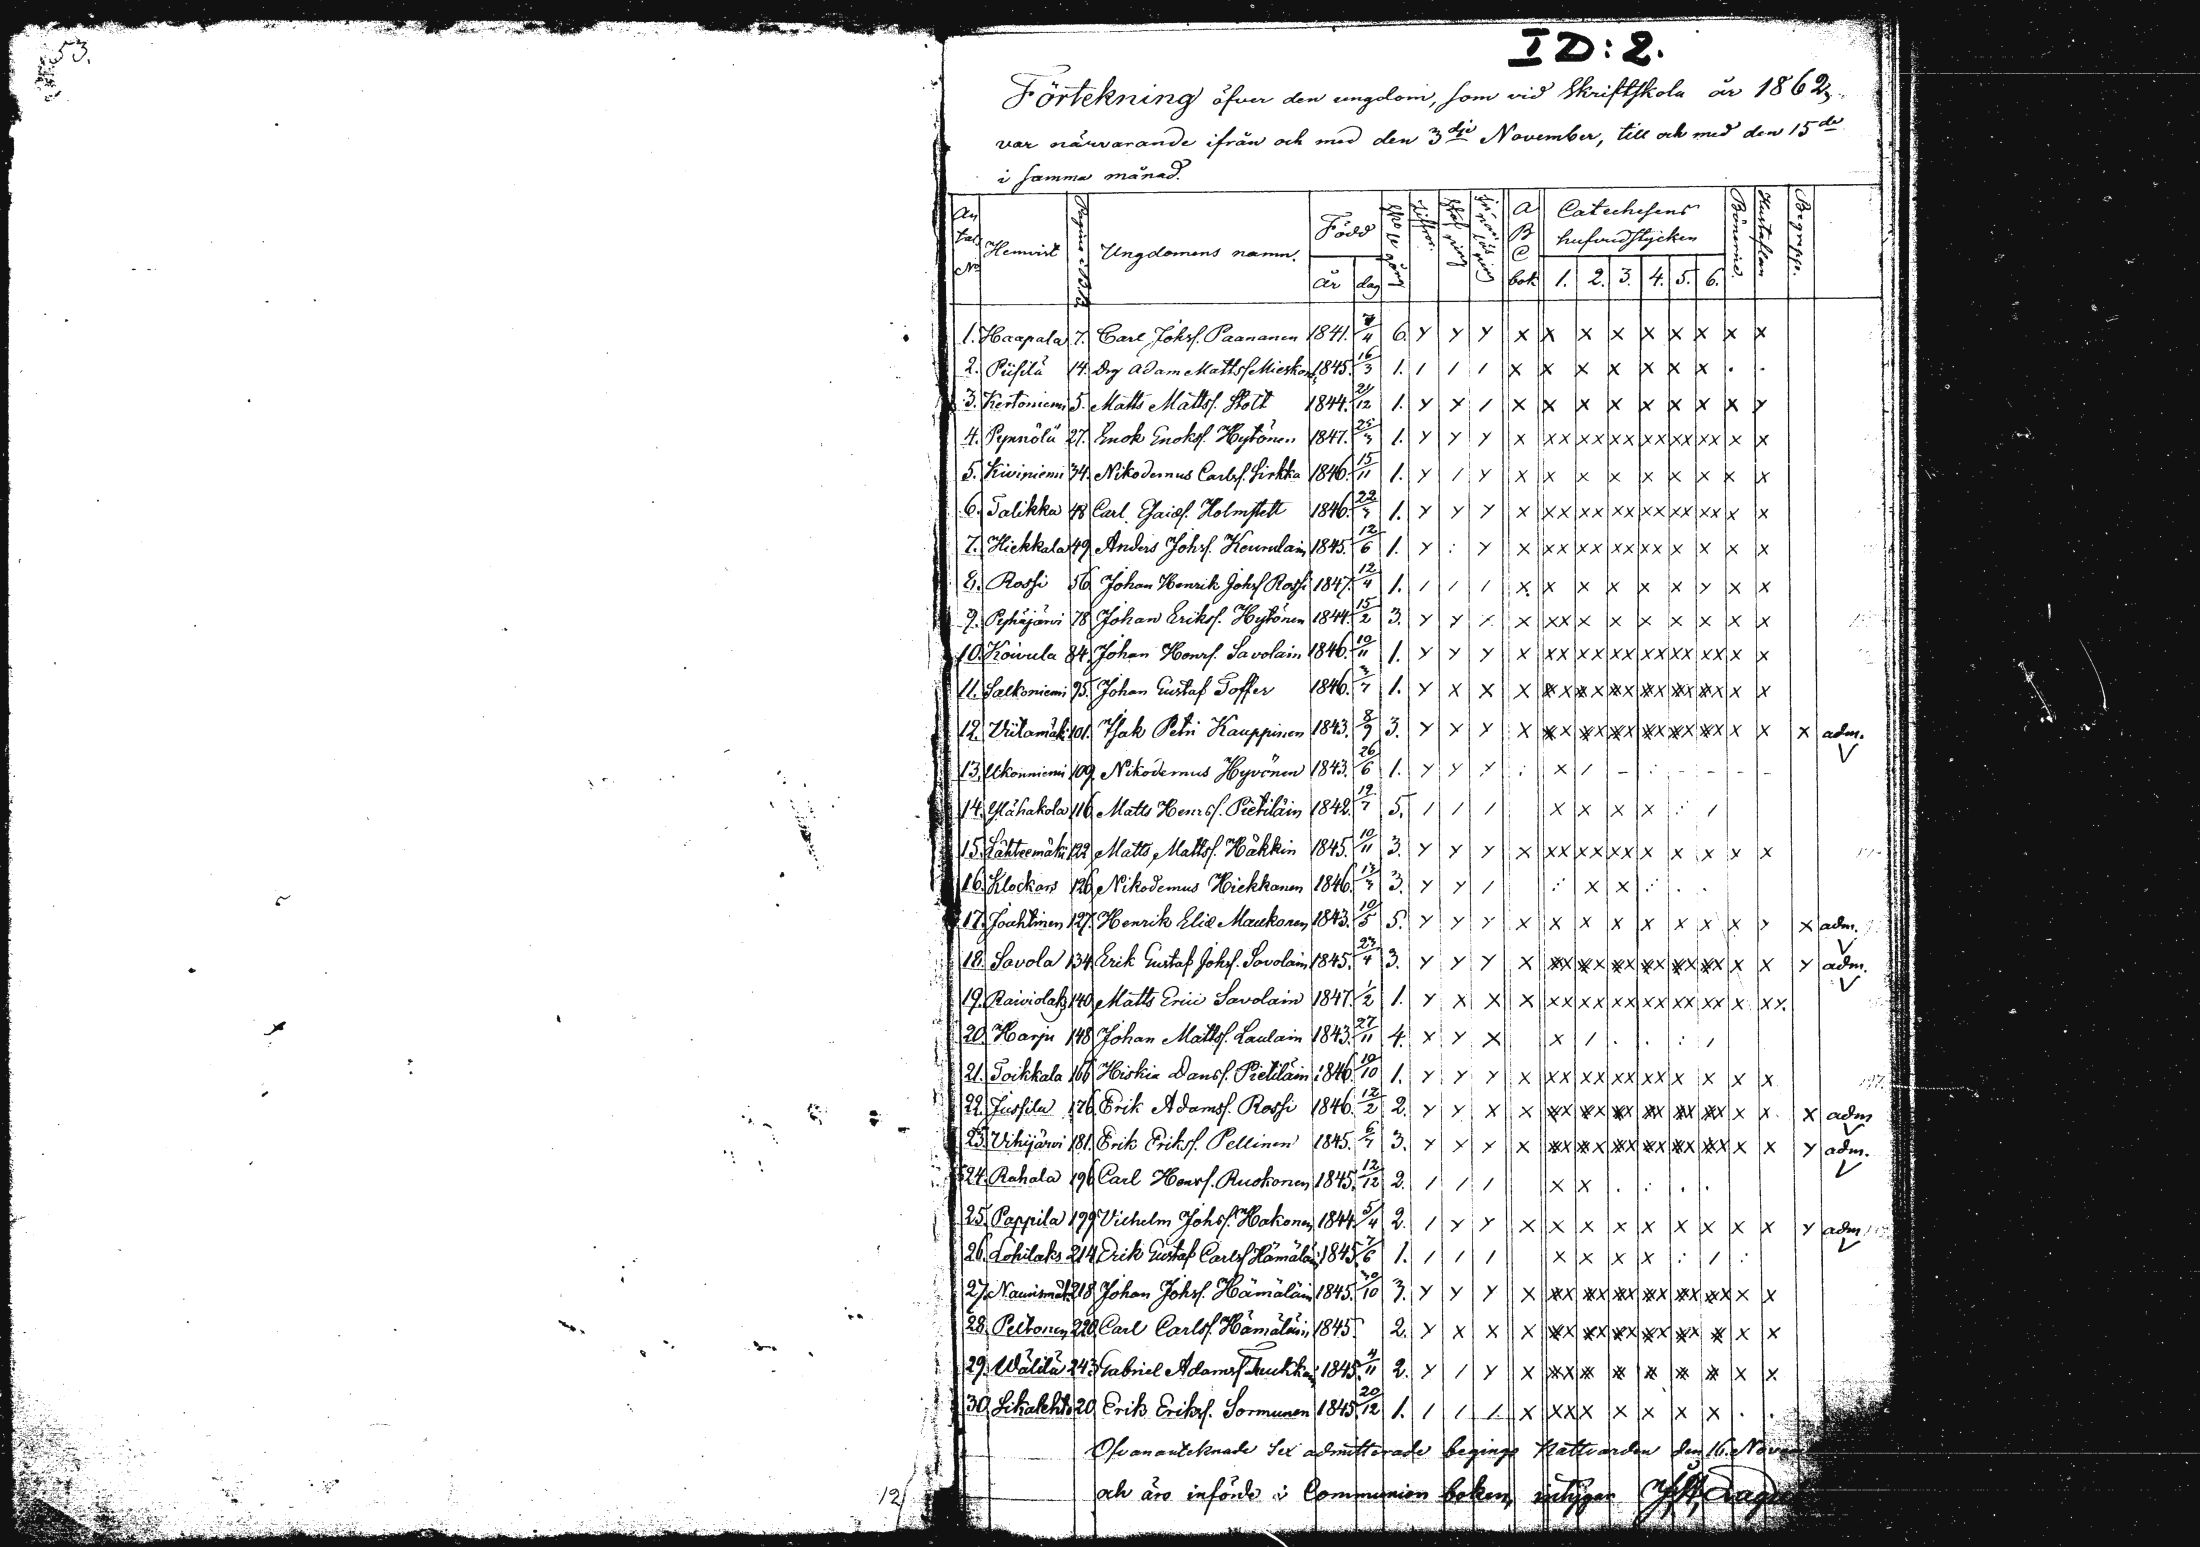 53.
ID:2.
Förtekning öfver den ungdom, som vid Skriftskola år 1862,
var närvarande ifrån och med den 3dje November, till och med den 15de
i samma månad.
Antal No Hemvist Ungdomens namn. Född år dag ABC bok Catechesens hufvudstycken 1. 2. 3. 4. 5. 6. Hustaflan Begrepp.
1. Haapala 7. Carl Johsf. Paananen 1841. 6. Y Y Y X X X X X X X X X
2. Piisilä 14. Drg Adam Mattsf Mieskon 1845. 16/3 1. / / / X X X X X X X . .
3. Kertoniemi 5. Matts Mattsf. Stolt 1844. 21/12 1. Y Y / X X X X X X X X Y
4. Pynnölä 27. Enok Enoksf. Hytönen 1847. 25/3 1. Y Y Y X XX XX XX XX XX XX X X
5. Kiviniemi 34. Nikodemus Carlsf. Sirkka 1846. 15/11 1. Y / Y X X X X X X X X X
6. Talikka 48 Carl Esaiæf. Holmstett 1846. 1. Y Y Y X XX XX XX XX XX XX X X
7. Hiekkala 49. Anders Johsf. 1845. 12/6 1. Y : Y X XX XX XX XX X X X X
8. Rossi 56. Johan Henrik Johsf Rossi 1847. 12/4 1. / / / X X X X X X Y X X
9. Pyhäjärvi 78 Johan Eriksf. Hytönen 1844. 15/2 3. Y Y / X XX X X X X X X X
10. Koivula 84. Johan Henrsf. Savolain 1846. 10/11 1. Y Y Y X XX XX XX XX XX XX X X
11. Salkoniemi 95. Johan Gustaf Toffer 1846. 1. Y X X X XX XX XX XX XX XX X X
12. Viitamäki 101. Isak Petri Kauppinen 1843. 8/9 3. Y Y Y X XX XX XX XX XX XX X X X adm.
13. Ukonniemi 109. Nikodemus Hyvönen 1843. 26/6 1. Y Y Y : X / - : - - - -
14. Ylähakola 116. Matts Henrsf. Pietiläin 1842. 5. / / / X X X X : /
15. Lähteemäki 122 Matts Mattsf. Häkkin 1845. 10/11 3. Y Y Y X XX XX XX X X X X X
16. Klockars 126. Nikodemus Hiekkanen 1846. 3. Y Y / : X X : . .
17. Joahtinen 127. Henrik Eliæ Maukonen 1843. 10/5 5. Y Y Y X X X X X X X X Y X adm.
18. Savola 134. Erik Gustaf Johsf. Savolain 1845. 3. Y Y Y X XX XX XX XX XX XX X X Y adm.
19. Raiviolaks 140. Matts Erici Savolain 1847. 1/2 1. Y X X X XX XX XX XX XX XX X XX.
20. Harju 148 Johan Mattsf. Laulain 1843. 27/11 4. X Y X X / . . : /
21. Toikkala 166 Hiskia Dansf. Pietiläin 1846. 10/10 1. Y Y Y X XX XX XX XX X X X X
22. Jussila 176. Erik Adamsf. Rossi 1846. 12/2 2. Y Y X X XX XX XX XX XX XX X X X adm
23. Vihijärvi 181. Erik Eriksf. Pellinen 1845. 3. Y Y Y X XX XX XX XX XX XX X X Y adm.
24. Rahala 196 Carl Henrsf. Ruokonen 1845. 12/12 2. / / / X X . : . .
25. Pappila 199 Vilhelm Johsf. Hakonen 1844. 5/4 2. / Y Y X X X X X X X X X Y adm.
26. Lohilaks 214. Erik Gustaf Carlsf Hämäläi 1845. 7/6 1. / / / X X X X : / :
27. 218. Johan Johsf. Hämäläin 1845. 30/10 3. Y Y Y X XX XX XX XX XX XX X X
28. Peltonen 220 Carl Carlsf. Hämäläin 1845. 2. Y X X X XX XX XX XX XX X X X
29. Wälilä 243 Gabriel Adamsf 1845. 4/11 2. Y / Y X XX X X X X X X X
30. 20. Erik Eriksf. Sormunen 1845. 20/12 1. / / / X XX X X X X X . .
Ofvanantecknade Sex admitterade begingo Nattvarden den 16. Novem
och äro införde i Communion boken, intygar
12